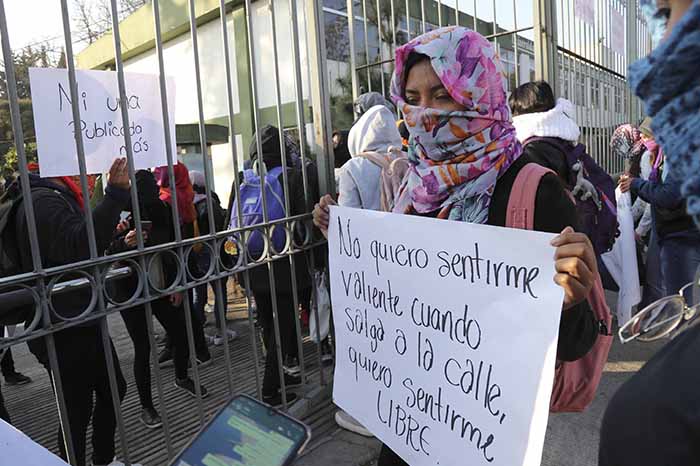 Ni una
Publicada
más
No quiero sentirme
valiente cuando
salga a la calle,
quiero sentirme
LIBRE.